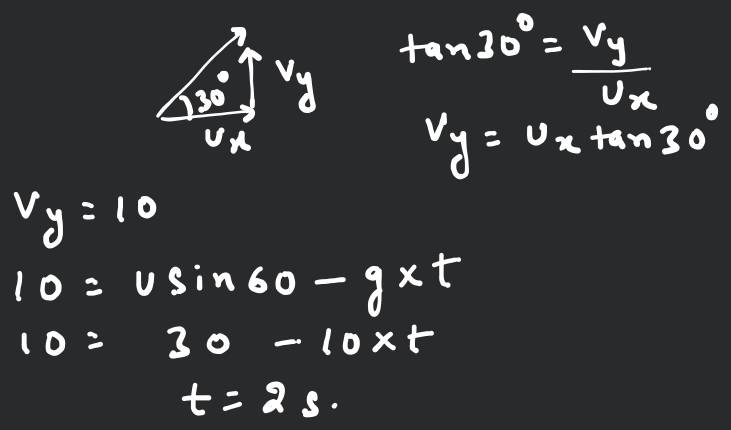 30° Vy
Ux
tan30° = Vy / Ux
Vy = Ux tan30°
Vy = 10
10 = U sin60 - g×t
10 = 30 - 10×t
t = 2 s.